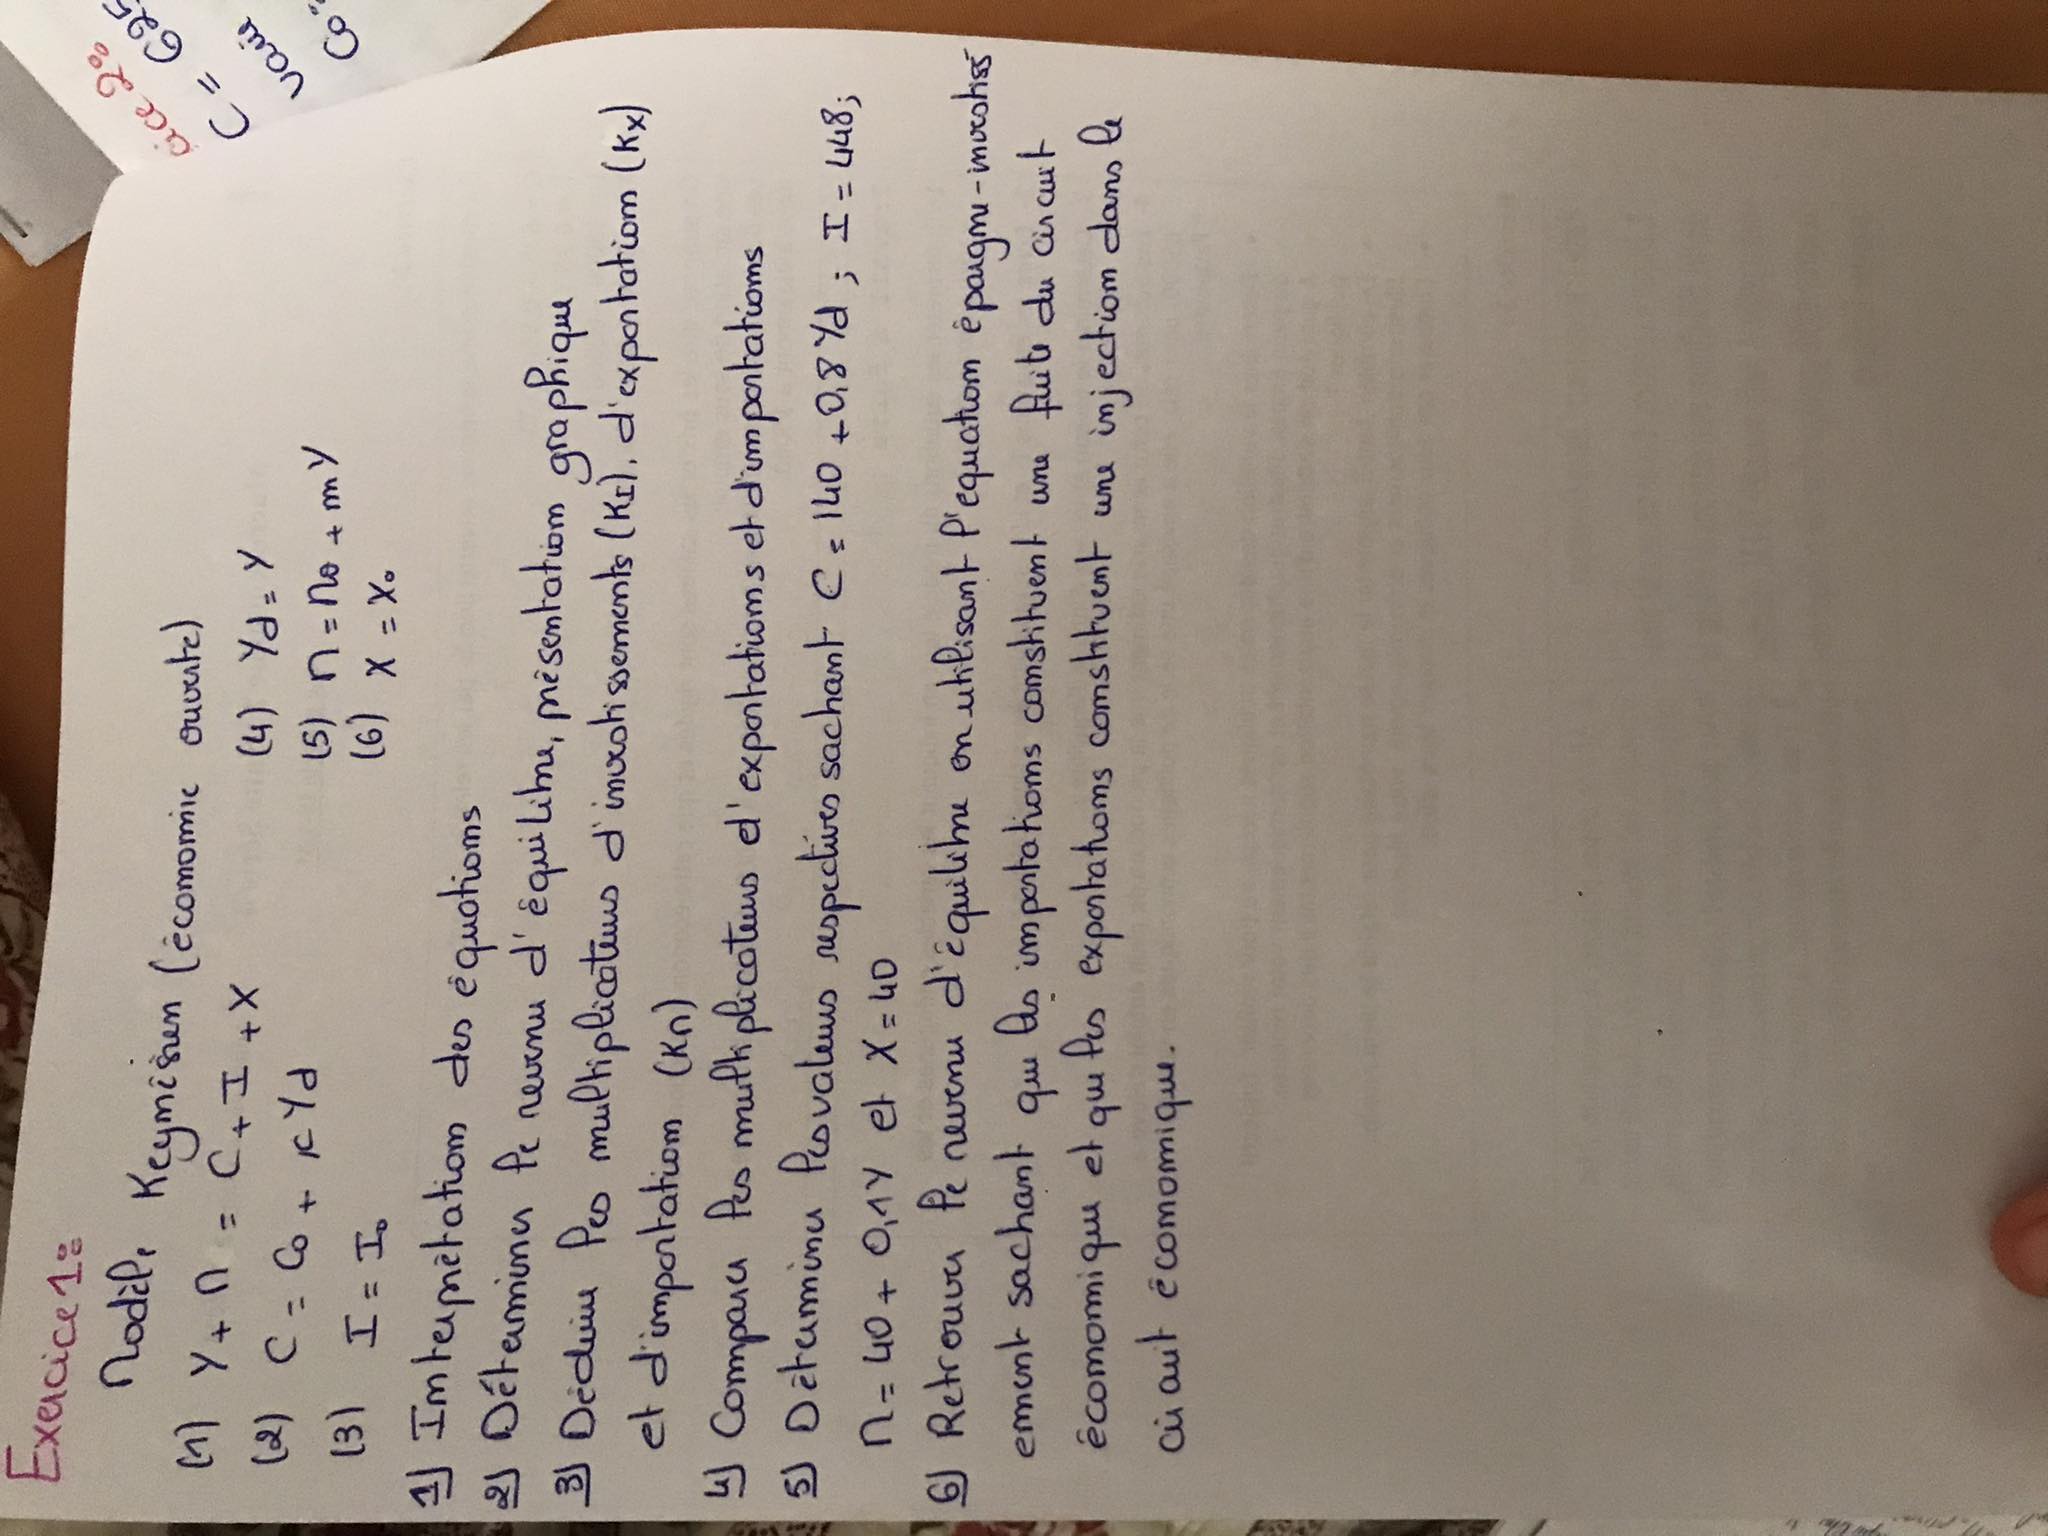 Exercice 1:
Modèle Keynésien (économie ouverte)
(1) Y + M = C + I + X (4) Yd = Y
(2) C = C0 + c Yd (5) M = M0 + mY
(3) I = I0 (6) X = X0
1) Interprétation des équations
2) Déterminer le revenu d'équilibre, présentation graphique
3) Déduire les multiplicateurs d'investissements (KI), d'exportation (Kx)
et d'importation (KM)
4) Comparer les multiplicateurs d'exportations et d'importations
5) Déterminer les valeurs respectives sachant C = 140 + 0,8 Yd ; I = 448 ;
M = 40 + 0,1Y et X = 40
6) Retrouver le revenu d'équilibre en utilisant l'equation épargne-investiss
ement sachant que les importations constituent une fuite du circuit
économique et que les exportations constituent une injection dans le
circuit économique.
ice 2:
C = 625
Co